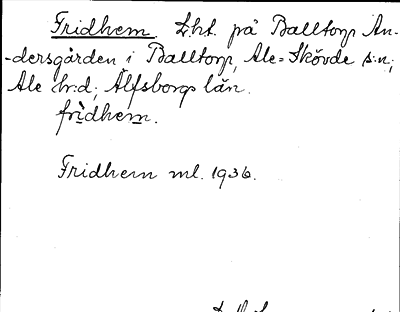 Fridhem. Lht. på Balltorp An-
-dersgården i Balltorp, Ale-Skövde s:n;
Ale h:d; Älfsborgs län.
fridhem.
Fridhem ml. 1936.